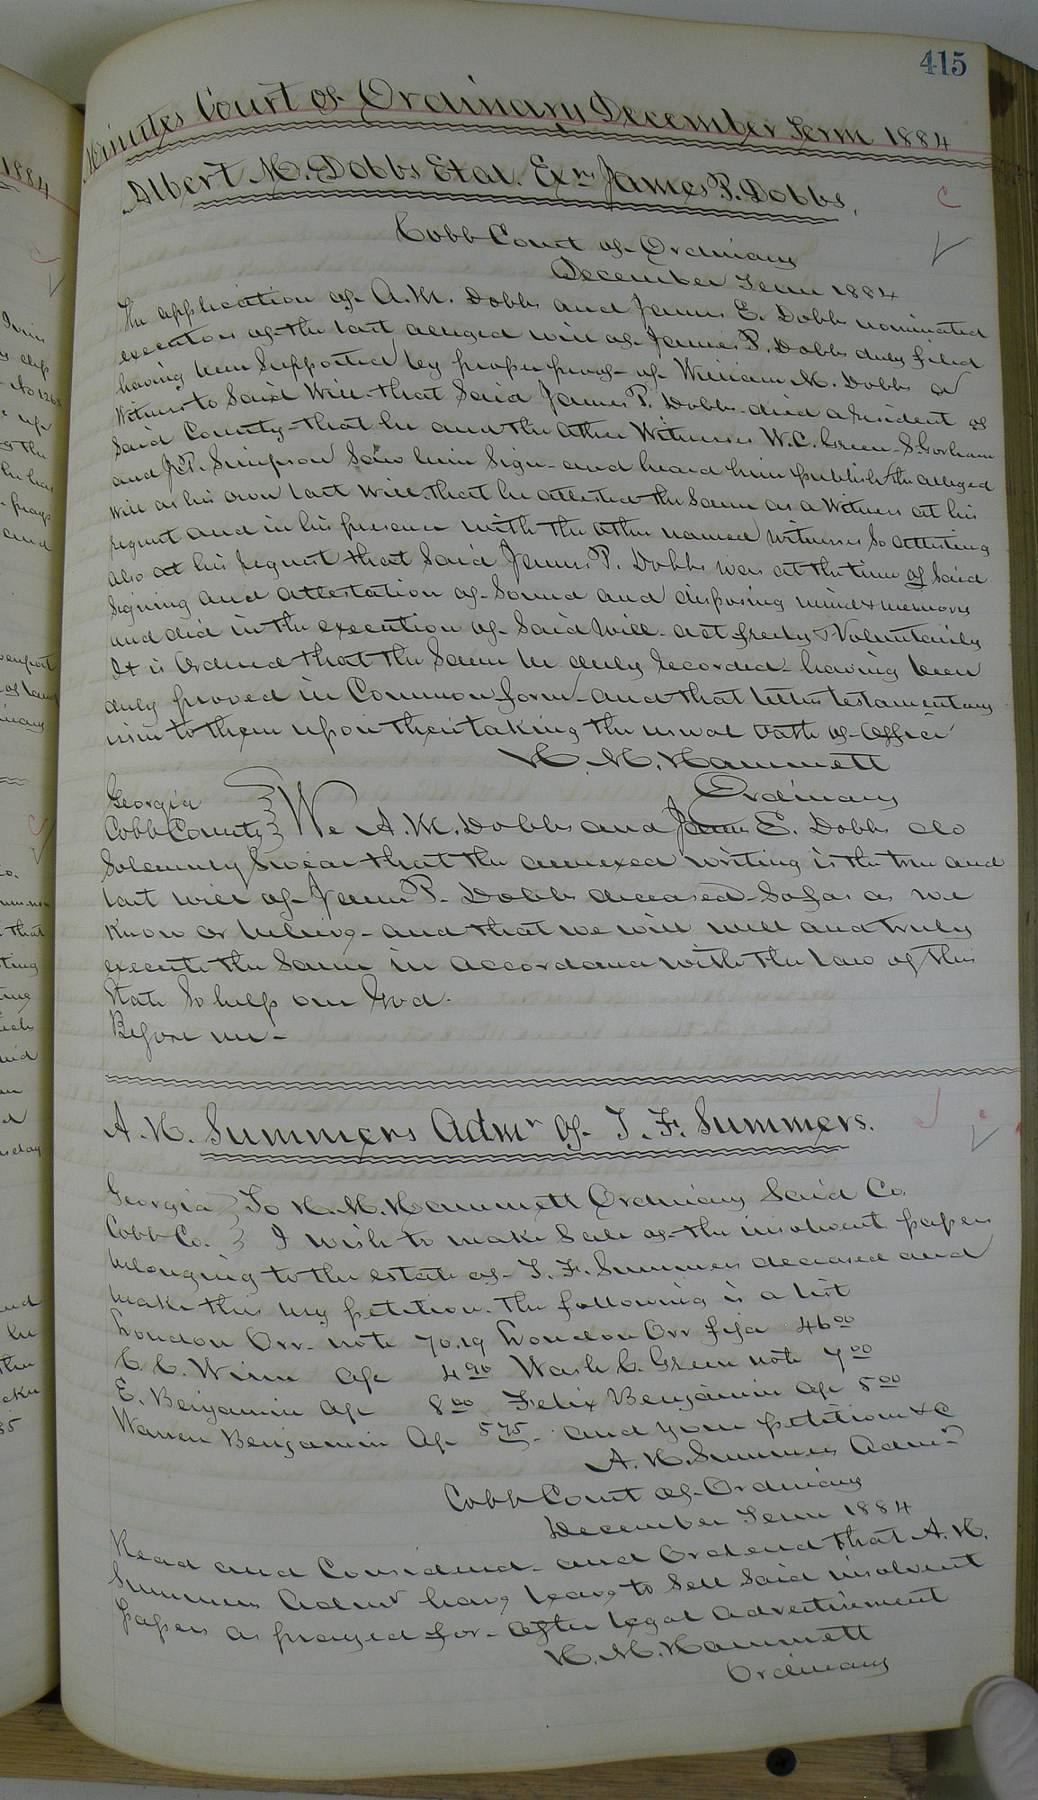 415
Minutes Court of Ordinary December Term 1884
Albert M. Dobbs Etal. Exrs James P. Dobbs.
Cobb Court of Ordinary
December Term 1884
The application of A. M. Dobbs and James E. Dobbs nominated
executors of the last alleged will of James P. Dobbs duly filed
having been supported by proper proof of William M. Dobbs a
Witness to Said Will that Said James P. Dobbs died a resident of
Said County that he and the other Witnesses W. C. Green S. Gorham
and J. P. Simpson Saw him Sign and heard him publish the alleged
Will as his own last Will, that he attested the Same as a Witness at his
request and in his presence with the other named Witnesses So attesting
also at his request that Said James P. Dobbs was at the time of Said
Signing and attestation of Sound and disposing mind & memory
and did in the execution of Said Will act freely & Voluntarily
It is Ordered that the Same be duly recorded having been
duly proved in Common form and that letters testamentary
issue to them upon their taking the usual oath of office
H. M. Hammett
Ordinary
Georgia
Cobb County We A. M. Dobbs and James E. Dobbs do
Solemnly Swear that the annexed writing is the true and
last will of James P. Dobbs deceased So far as we
Know or believe and that we will well and truly
execute the Same in accordance with the law of this
State So help our God.
Before me
A. H. Summers Admr of T. F. Summers.
Georgia To H. M. Hammett Ordinary Said Co.
Cobb Co. I wish to make Sale of the insolvent papers
belonging to the estate of T. F. Summers deceased and
make this my petition. The following is a list
London Orr note 70.19 London Orr fifa 46 00
C. C. Winn afc 4 90 Wash C. Green note 7 00
E. Benjamin afc 8 00 Felix Benjamin afc 5 00
Warren Benjamin afc 5 75 and your petitioner &c
A. H. Summers Admr
Cobb Court of Ordinary
December Term 1884
Read and Considered and Ordered that A. H.
Summers Admr have leave to Sell Said insolvent
papers as prayed for after legal advertisement
H. M. Hammett
Ordinary